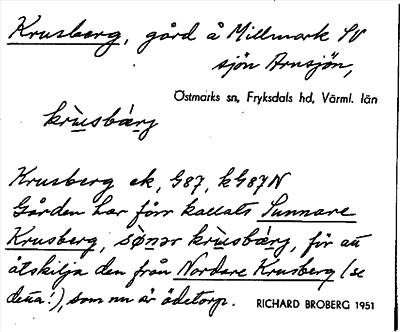 Krusberg, gård å Millmark SV
sjön Arnsjön,
Östmarks sn, Fryksdals hd, Värml. län
krùsbærg
Krusberg ek, G87, kG87N
Gården har förr kallats Sunnare
Krusberg, sònər krùsbærg, för att
åtskilja den från Nordare Krusberg (se
detta!), som nu är ödetorp. RICHARD BROBERG 1951